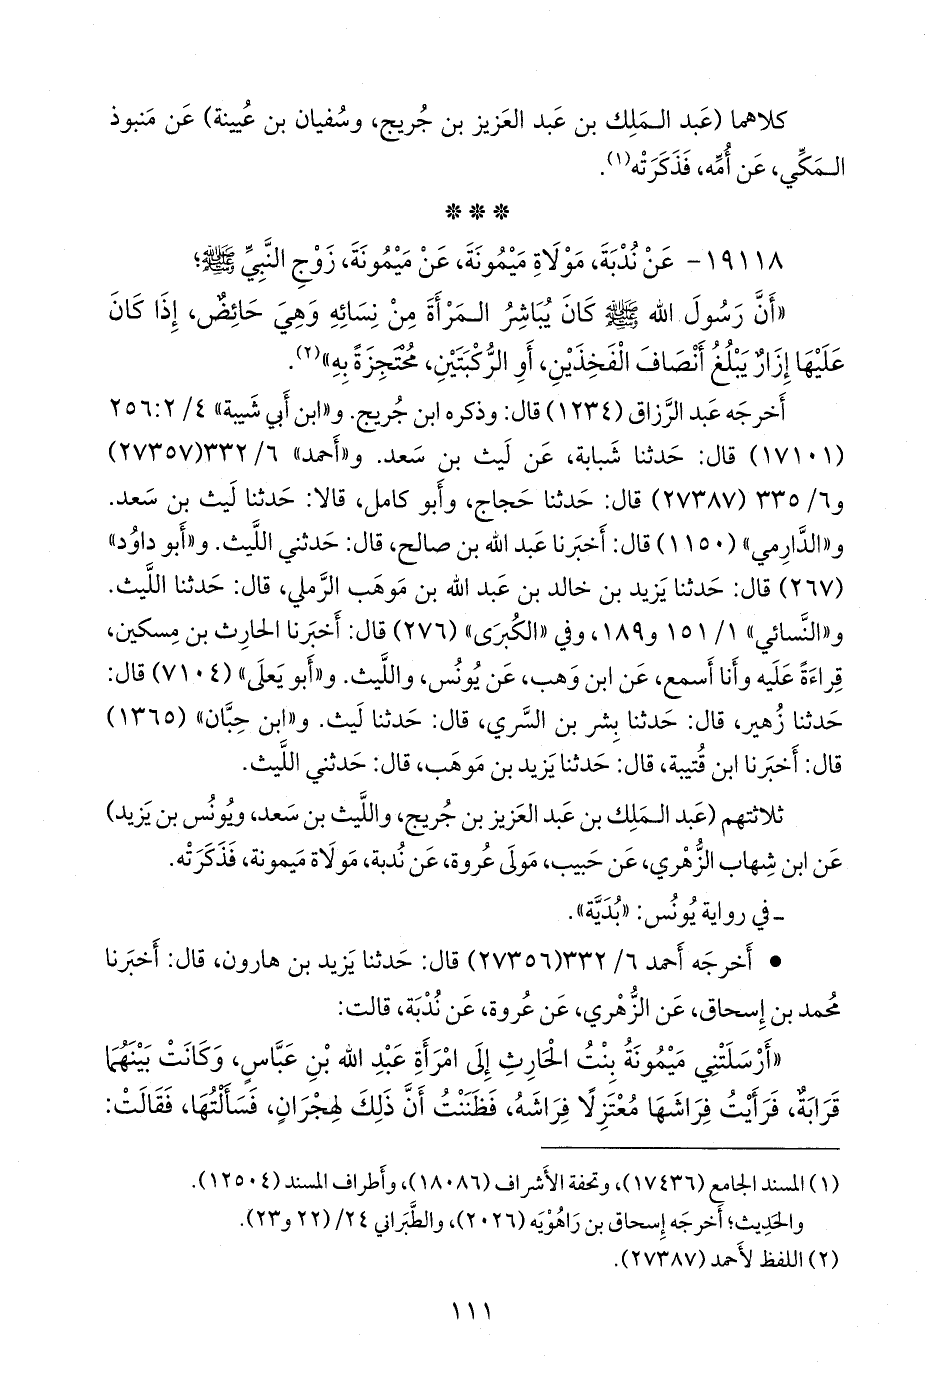 كلاهما (عَبد الـمَلِك بن عَبد العَزيز بن جُريج، وسُفيان بن عُيينة) عَن مَنبوذ
الـمَكِّي، عَن أُمِّه، فَذَكَرَتْه(١).
* * *
١٩١١٨- عَنْ نُدْبَةَ، مَوْلَاةِ مَيْمُونَةَ، عَنْ مَيْمُونَةَ، زَوْجِ النَّبِيِّ ﷺ؛
«أَنَّ رَسُولَ الله ﷺ كَانَ يُبَاشِرُ الـمَرْأَةَ مِنْ نِسَائِهِ وَهِيَ حَائِضٌ، إِذَا كَانَ
عَلَيْهَا إِزَارٌ يَبْلُغُ أَنْصَافَ الْفَخِذَيْنِ، أَوِ الرُّكْبَتَيْنِ، مُحْتَجِزَةً بِهِ»(٢).
أَخرجَه عَبد الرَّزاق (١٢٣٤) قال: وذكره ابن جُريج. و«ابن أَبي شَيبة» ٤/ ٢٥٦:٢
(١٧١٠١) قال: حَدثنا شَبابة، عَن لَيث بن سَعد. و«أَحمد» ٦/ ٣٣٢(٢٧٣٥٧)
و٦/ ٣٣٥ (٢٧٣٨٧) قال: حَدثنا حَجاج، وأَبو كامل، قالا: حَدثنا لَيث بن سَعد.
و«الدَّارِمي» (١١٥٠) قال: أَخبَرنا عَبد الله بن صالح، قال: حَدثني اللَّيث. و«أَبو داوُد»
(٢٦٧) قال: حَدثنا يَزيد بن خالد بن عَبد الله بن مَوهَب الرَّملي، قال: حَدثنا اللَّيث.
و«النَّسائي» ١/ ١٥١ و١٨٩، وفي «الكُبرَى» (٢٧٦) قال: أَخبَرنا الحارِث بن مِسكين،
قِراءَةً عَلَيه وأَنا أَسمع، عَن ابن وَهب، عَن يُونُس، واللَّيث. و«أَبو يَعلَى» (٧١٠٤) قال:
حَدثنا زُهير، قال: حَدثنا بِشر بن السَّري، قال: حَدثنا لَيث. و«ابن حِبَّان» (١٣٦٥)
قال: أَخبَرنا ابن قُتيبة، قال: حَدثنا يَزيد بن مَوهَب، قال: حَدثني اللَّيث.
ثلاثتهم (عَبد الـمَلِك بن عَبد العَزيز بن جُريج، واللَّيث بن سَعد، ويُونُس بن يَزيد)
عَن ابن شِهاب الزُّهْري، عَن حَبيب، مَولَى عُروة، عَن نُدبة، مَولَاة مَيمونة، فَذَكَرَتْه.
ـ في رواية يُونُس: «بُدَيَّة».
• أَخرجَه أَحمد ٦/ ٣٣٢(٢٧٣٥٦) قال: حَدثنا يَزيد بن هارون، قال: أَخبَرنا
مُحمد بن إِسحاق، عَن الزُّهْري، عَن عُروة، عَن نُدْبَة، قالت:
«أَرْسَلَتْنِي مَيْمُونَةُ بِنْتُ الْحَارِثِ إِلَى امْرَأَةِ عَبْدِ الله بْنِ عَبَّاسٍ، وَكَانَتْ بَيْنَهُمَا
قَرَابَةٌ، فَرَأَيْتُ فِرَاشَهَا مُعْتَزِلًا فِرَاشَهُ، فَظَنَنْتُ أَنَّ ذَلِكَ لِهِجْرَانٍ، فَسَأَلْتُهَا، فَقَالَتْ:
(١) المسند الجامع (١٧٤٣٦)، وتحفة الأَشراف (١٨٠٨٦)، وأَطراف المسند (١٢٥٠٤).
والحَدِيث؛ أَخرجَه إِسحاق بن رَاهُوْيَه (٢٠٢٦)، والطَّبَراني ٢٤/ (٢٢ و٢٣).
(٢) اللفظ لأَحمد (٢٧٣٨٧).
١١١